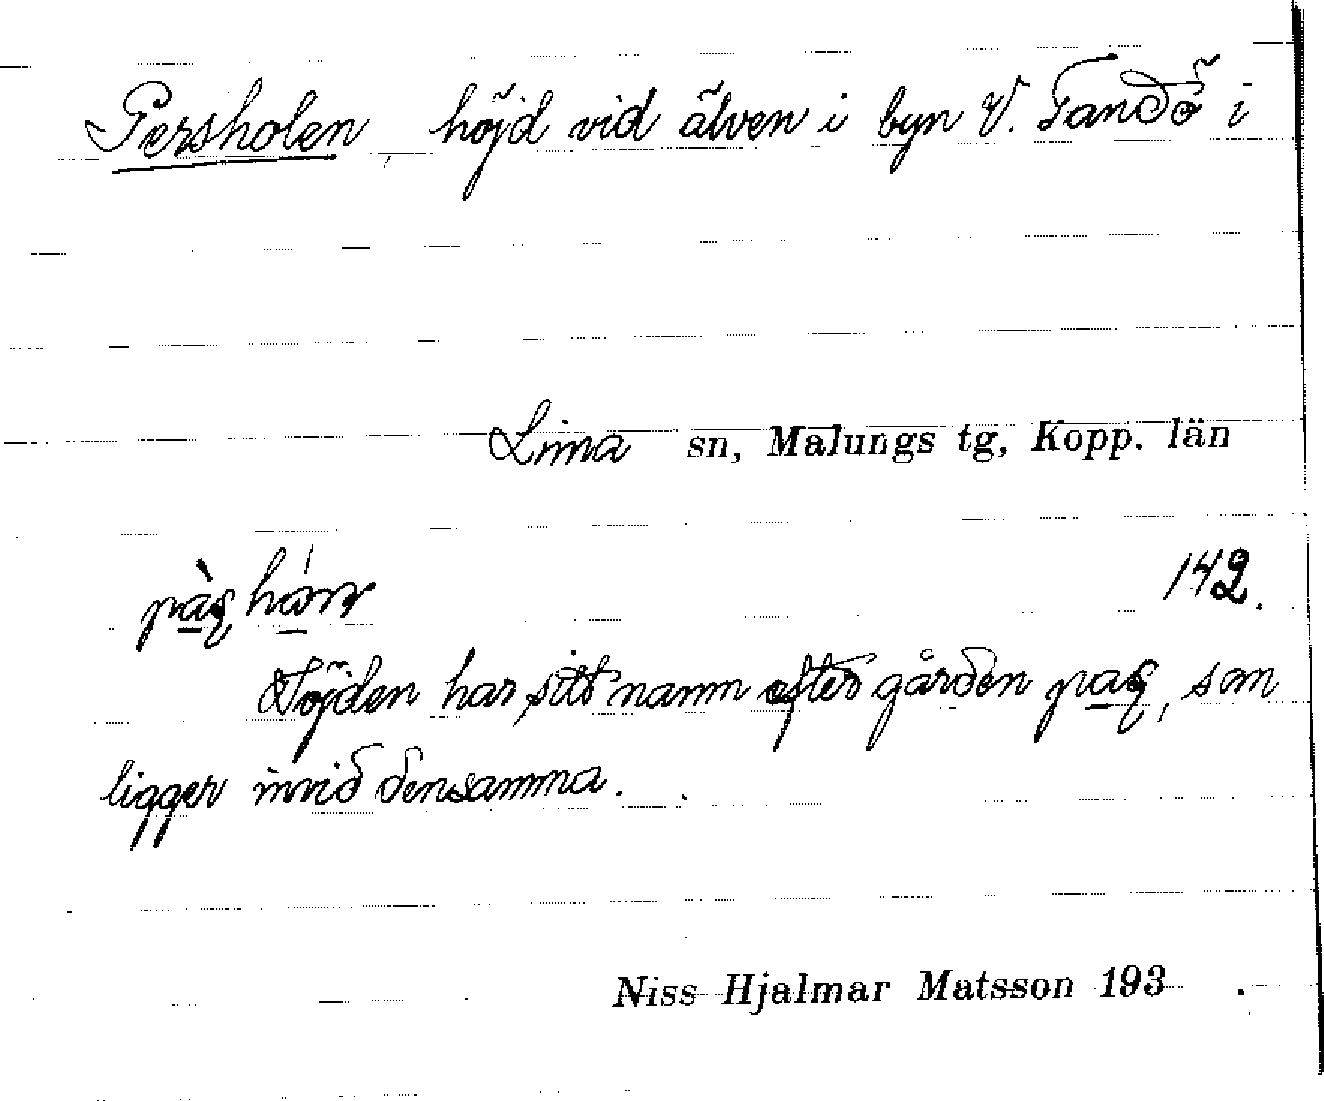 Persholen, höjd vid älven i byn V. Tandö i
Lima sn, Malungs tg, Kopp. län
142.
Höjden har sitt namn efter gården pas, som
ligger invid densamma.
Niss Hjalmar Matsson 193 .